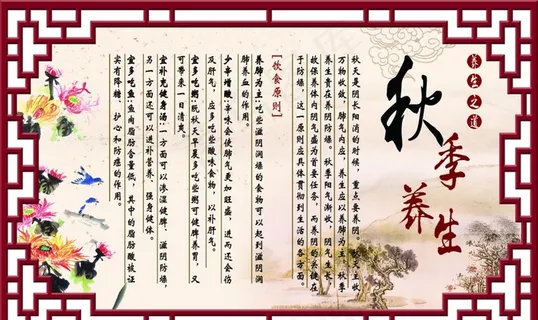 养生之道
秋季养生
秋天是阴长阳消的时候，重点要养阴。秋主收，
万物收敛，肺气内应，养生应以养肺为主。秋季
养生贵在养阴防燥。秋季阳气渐收，阴气生长，
故保养体内阴气盛为首要任务，而养阴的关键在
于防燥，这一原则应具体贯彻到生活的各方面。
[饮食原则]
养肺为主：吃些滋阴润燥的食物可以起到滋阴润
肺养血的作用。
少辛增酸：辛味会使肺气更加旺盛，进而还会伤
及肝气，应多吃酸味食物，以补肝气。
宜多吃粥：既秋天早晨多吃些粥可健脾养胃，又
可带来一日清爽。
宜补充健身汤：一方面可以渗湿健脾、滋阴防燥，
另一方面还可以进补营养、强身健体。
宜多吃鱼：鱼肉脂肪含量低，其中的脂肪酸被证
实有降糖、护心和防癌的作用。